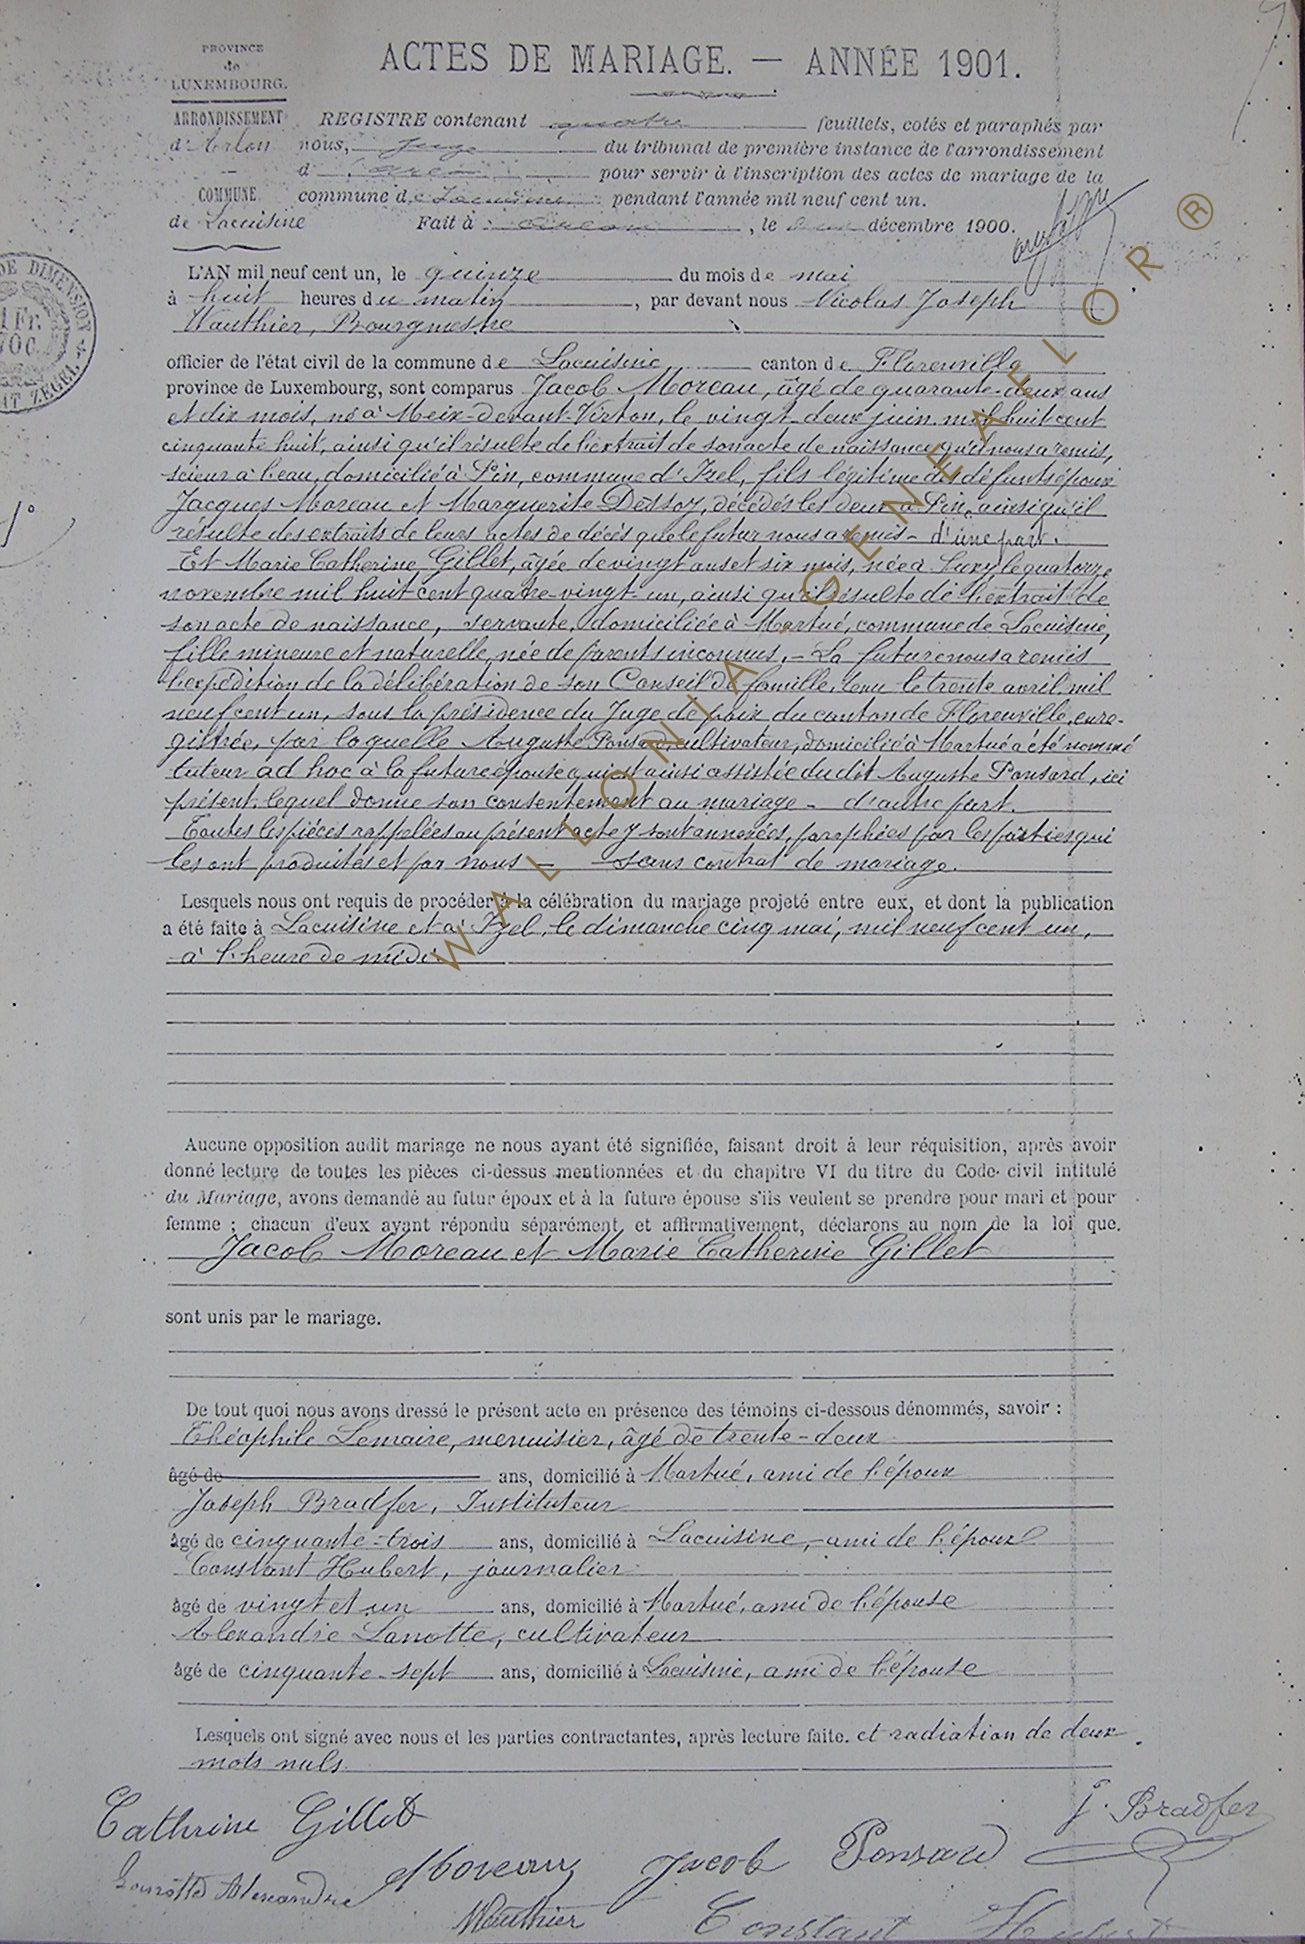 PROVINCE
de
LUXEMBOURG.
ACTES DE MARIAGE. — ANNÉE 1901.
ARRONDISSEMENT
d'Arlon
COMMUNE
de Lacuisine
REGISTRE contenant quatre feuillets, cotés et paraphés par
nous, Juge du tribunal de première instance de l'arrondissement
d' pour servir à l'inscription des actes de mariage de la
commune de Lacuisine pendant l'année mil neuf cent un.
Fait à , le décembre 1900.
DE DIMENSION
1 Fr.
ZEGEL
L'AN mil neuf cent un, le quinze du mois de mai
à huit heures du matin, par devant nous Nicolas Joseph
Wauthier, Bourgmestre
officier de l'état civil de la commune de Lacuisine canton de Florenville
province de Luxembourg, sont comparus Jacob Moreau, âgé de quarante-deux ans
et dix mois, né à Meix-devant-Virton, le vingt-deux juin mil huit cent
cinquante huit, ainsi qu'il résulte de l'extrait de son acte de naissance qu'il nous a remis,
scieur à l'eau, domicilié à Pin, commune d'Izel, fils légitime des défunts époux
Jacques Moreau et Marguerite Dessoy, décédés les deux à Pin, ainsi qu'il
résulte des extraits de leurs actes de décès que le futur nous a remis - d'une part.
Et Marie Catherine Gillet, âgée de vingt ans et six mois, née à Suxy le quatorze
novembre mil huit cent quatre-vingt-un, ainsi qu'il résulte de l'extrait de
son acte de naissance, servante, domiciliée à Martué, commune de Lacuisine,
fille mineure et naturelle, née de parents inconnus. - La future nous a remis
l'expédition de la délibération de son Conseil de famille, tenu le trente avril mil
neuf cent un, sous la présidence du Juge de paix du canton de Florenville, enre-
gitrée, par laquelle Auguste Ponsard, cultivateur, domicilié à Martué a été nommé
tuteur ad hoc à la future épouse qui est ainsi assistée du dit Auguste Ponsard, ici
présent, lequel donne son consentement au mariage - d'autre part.
Toutes les pièces rappelées au présent acte y sont annexées, paraphées par les parties qui
les ont produites et par nous - sans contrat de mariage.
Lesquels nous ont requis de procéder à la célébration du mariage projeté entre eux, et dont la publication
a été faite à Lacuisine et à Izel, le dimanche cinq mai, mil neuf cent un,
à l'heure de midi.
Aucune opposition audit mariage ne nous ayant été signifiée, faisant droit à leur réquisition, après avoir
donné lecture de toutes les pièces ci-dessus mentionnées et du chapitre VI du titre du Code civil intitulé
du Mariage, avons demandé au futur époux et à la future épouse s'ils veulent se prendre pour mari et pour
femme ; chacun d'eux ayant répondu séparément et affirmativement, déclarons au nom de la loi que.
Jacob Moreau et Marie Catherine Gillet
sont unis par le mariage.
De tout quoi nous avons dressé le présent acte en présence des témoins ci-dessous dénommés, savoir :
Théophile Lemaire, menuisier, âgé de trente-deux
âgé de ans, domicilié à Martué, ami de l'époux
Joseph Bradfer, Instituteur
âgé de cinquante-trois ans, domicilié à Lacuisine, ami de l'époux
Constant Hubert, journalier
âgé de vingt et un ans, domicilié à Martué, ami de l'épouse
Alexandre Lanotte, cultivateur
âgé de cinquante-sept ans, domicilié à Lacuisine, ami de l'épouse
Lesquels ont signé avec nous et les parties contractantes, après lecture faite. et radiation de deux
mots nuls.
Cathrine Gillet
J. Bradfer
Moreau Jacob Ponsard
Alexandre
Wauthier
Constant Hubert
WALLONIA GENEAFLOR ®